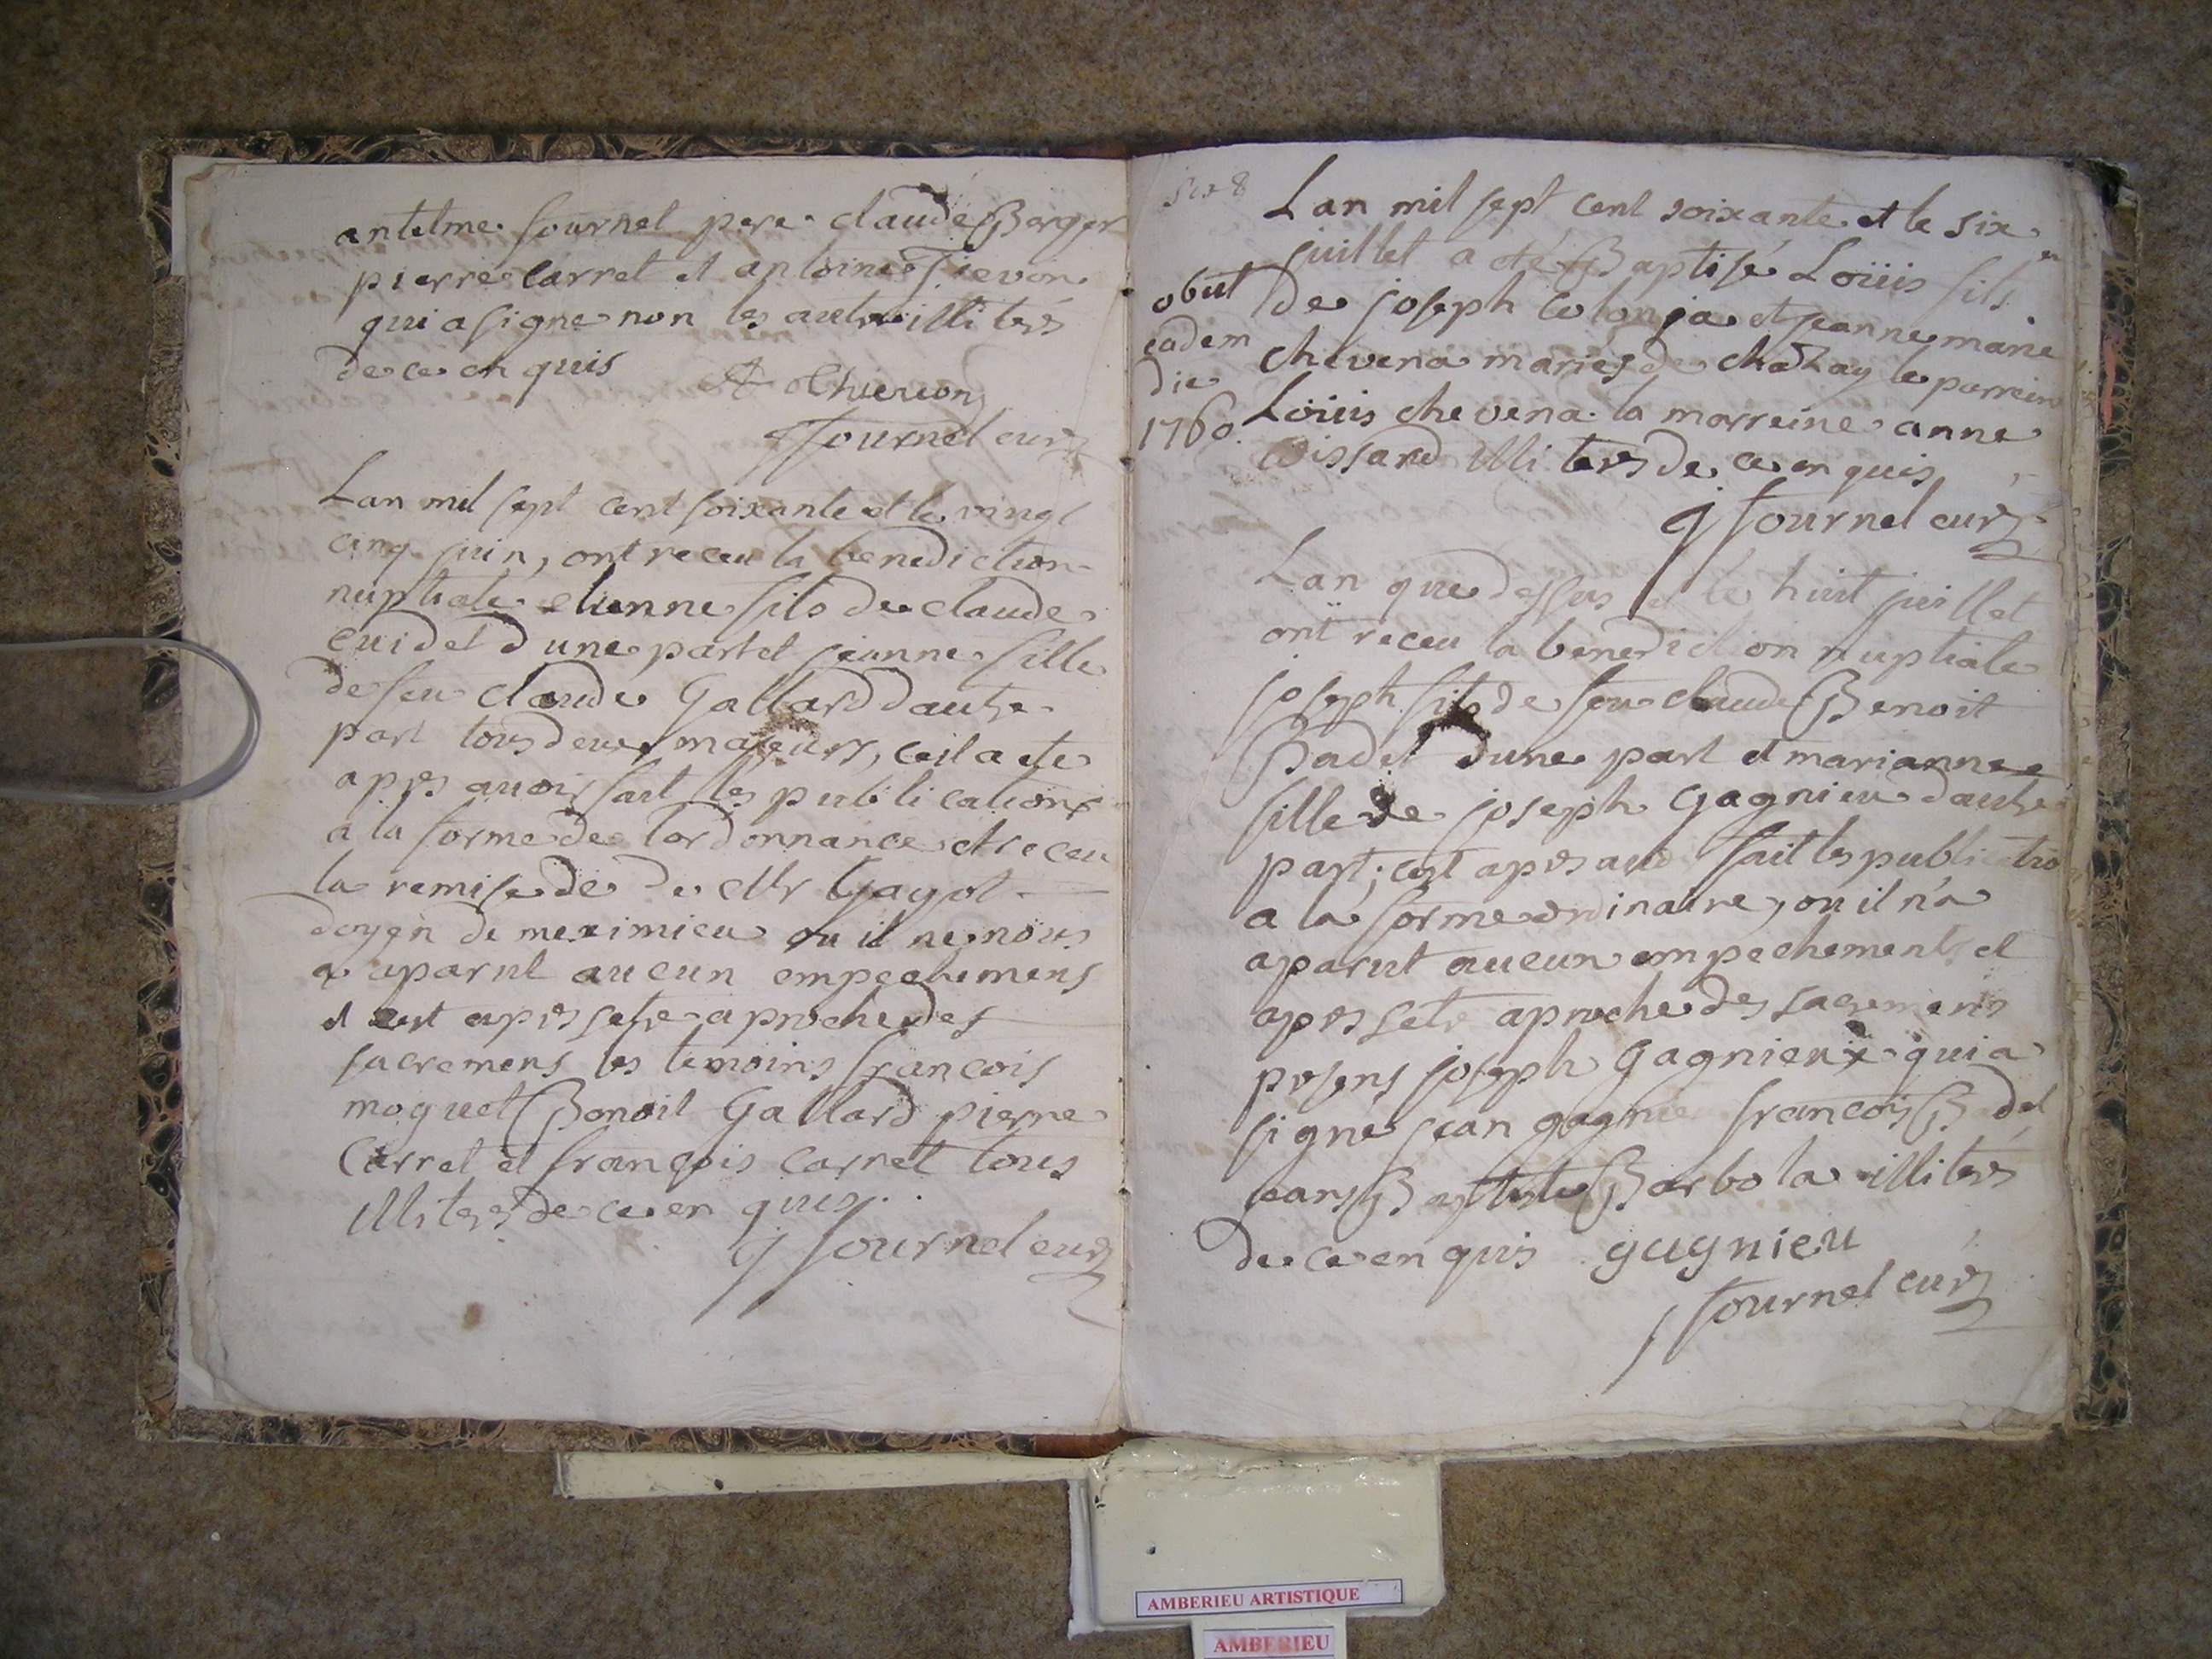 antelme fournel pere claude Berger
pierre Carret et antoine Tievon
qui a signe non les autre illiterés
de ce enquis
A Thievion
fournel curé
Lan mil sept cent soixante et le vingt
cinq juin, ont receu la benediction
nuptiale etienne fils de claude
cuidet d'une part et jeanne fille
de feu claude Gallard dautre
part tous deux majeurs, ceil a ete
apres avoir fait les publications
a la forme de lordonnance et receu
la remise de de Mr Gayot
doyen de meximieu ou il ne nous
a aparut aucun empechemens
et cest apres setre aproche des
sacremens les temoins francois
moguet Benoit Gallard pierre
Carret et françois carret tous
illiteres de ce enquis.
j fournel curé
six 8
Lan mil sept cent soixante et le six
juillet a eté Baptisé Loüis fils
de joseph Colonja et jeanne marie
chevena mariés de chazay le parrein
Loüis chevena la marreine anne
Cissard illiteres de ce enquis
j fournel curé
obiit
eadem
die
1760.
Lan que dessus et le huit juillet
ont receu la benediction nuptiale
joseph fils de feu claude Benoit
Badet dune part et marianne
fille de joseph Gagnieu dautre
part; cest apres avoir fait les publicatio
a la forme ordinaire, ou il n'a
aparut aucun empechements et
apres setre aproche des sacremens
presens joseph Gagnieux qui a
signé jean gagnie francois Badet
jean Baptiste Barbola illiterés
de ce enquis gagnieu
j fournel curé
AMBERIEU ARTISTIQUE
AMBERIEU